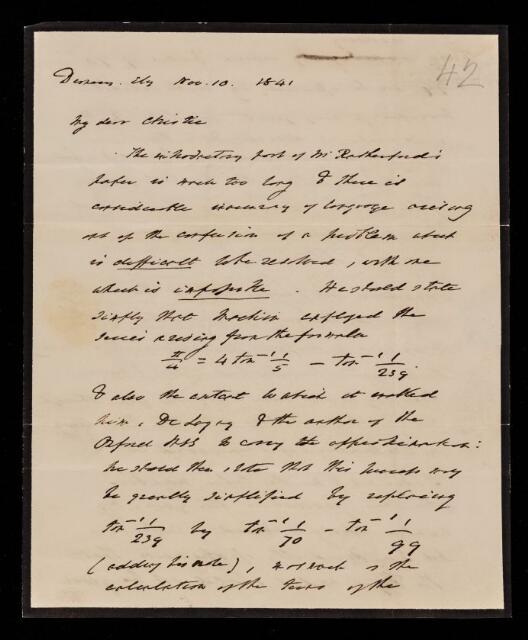 42
Deanery. Ely Nov. 10. 1841
My dear Christie
The introductory part of Mr Rutherford's
paper is much too long & there is
considerable inaccuracy of language arising
out of the confusion of a problem which
is difficult to be resolved, with one
which is impossible. He should state
simply that Machin employed the
series arising from the formula
π/4 = 4 tan⁻¹ 1/5 − tan⁻¹ 1/239.
& also the extent to which it enabled
him, De Lagny & the author of the
Oxford MSS to carry the approximation:
he should then state that this process may
be greatly simplified by replacing
tan⁻¹ 1/239 by tan⁻¹ 1/70 − tan⁻¹ 1/99
(adding his note), inasmuch as the
calculation of the terms of the